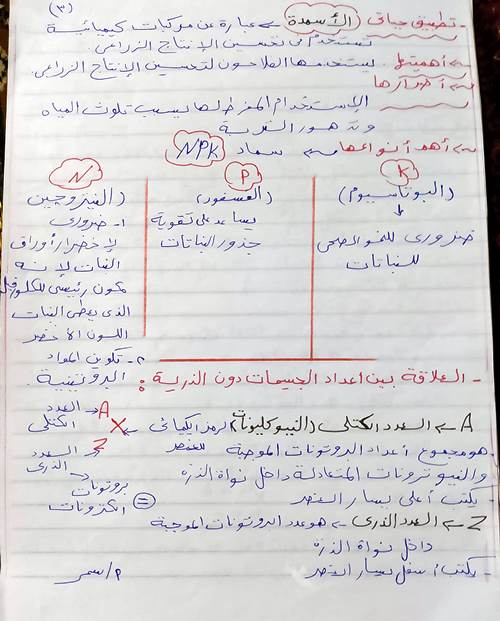 (٣)
- تطبيق حياتى (الأسمدة) => عبارة عن مركبات كيميائية
تستخدم فى تحسين الإنتاج الزراعى.
=> أهميتها. يستخدمها الفلاحون لتحسين الإنتاج الزراعى.
=> أضرارها
الاستخدام المفرط لها يسبب تلوث المياه
وتدهور التربة
=> أهم أنواعها => سماد NPK
K
(البوتاسيوم)
ضرورى للنمو الصحى
للنباتات
P
(الفسفور)
يساعد على تقوية
جذور النباتات
N
(النيتروجين)
١- ضرورى
لإخضرار أوراق
النبات لإنه
مكون رئيسى للكلوروفيل
الذى يعطى النبات
اللون الأخضر
٢- تكوين المواد
البروتينية.
- العلاقة بين أعداد الجسيمات دون الذرية :
A => العدد الكتلى (النيوكليونات)
- هو مجموع أعداد البروتونات الموجبة
والنيوترونات المتعادلة داخل نواة الذرة
- يكتب أعلى يسار العنصر
Z => العدد الذرى => هو عدد البروتونات الموجبة
داخل نواة الذرة
- يكتب أسفل يسار العنصر
A العدد الكتلى
X الرمز الكيميائى للعنصر
Z العدد الذرى
بروتونات
=
الكترونات
م/سمر